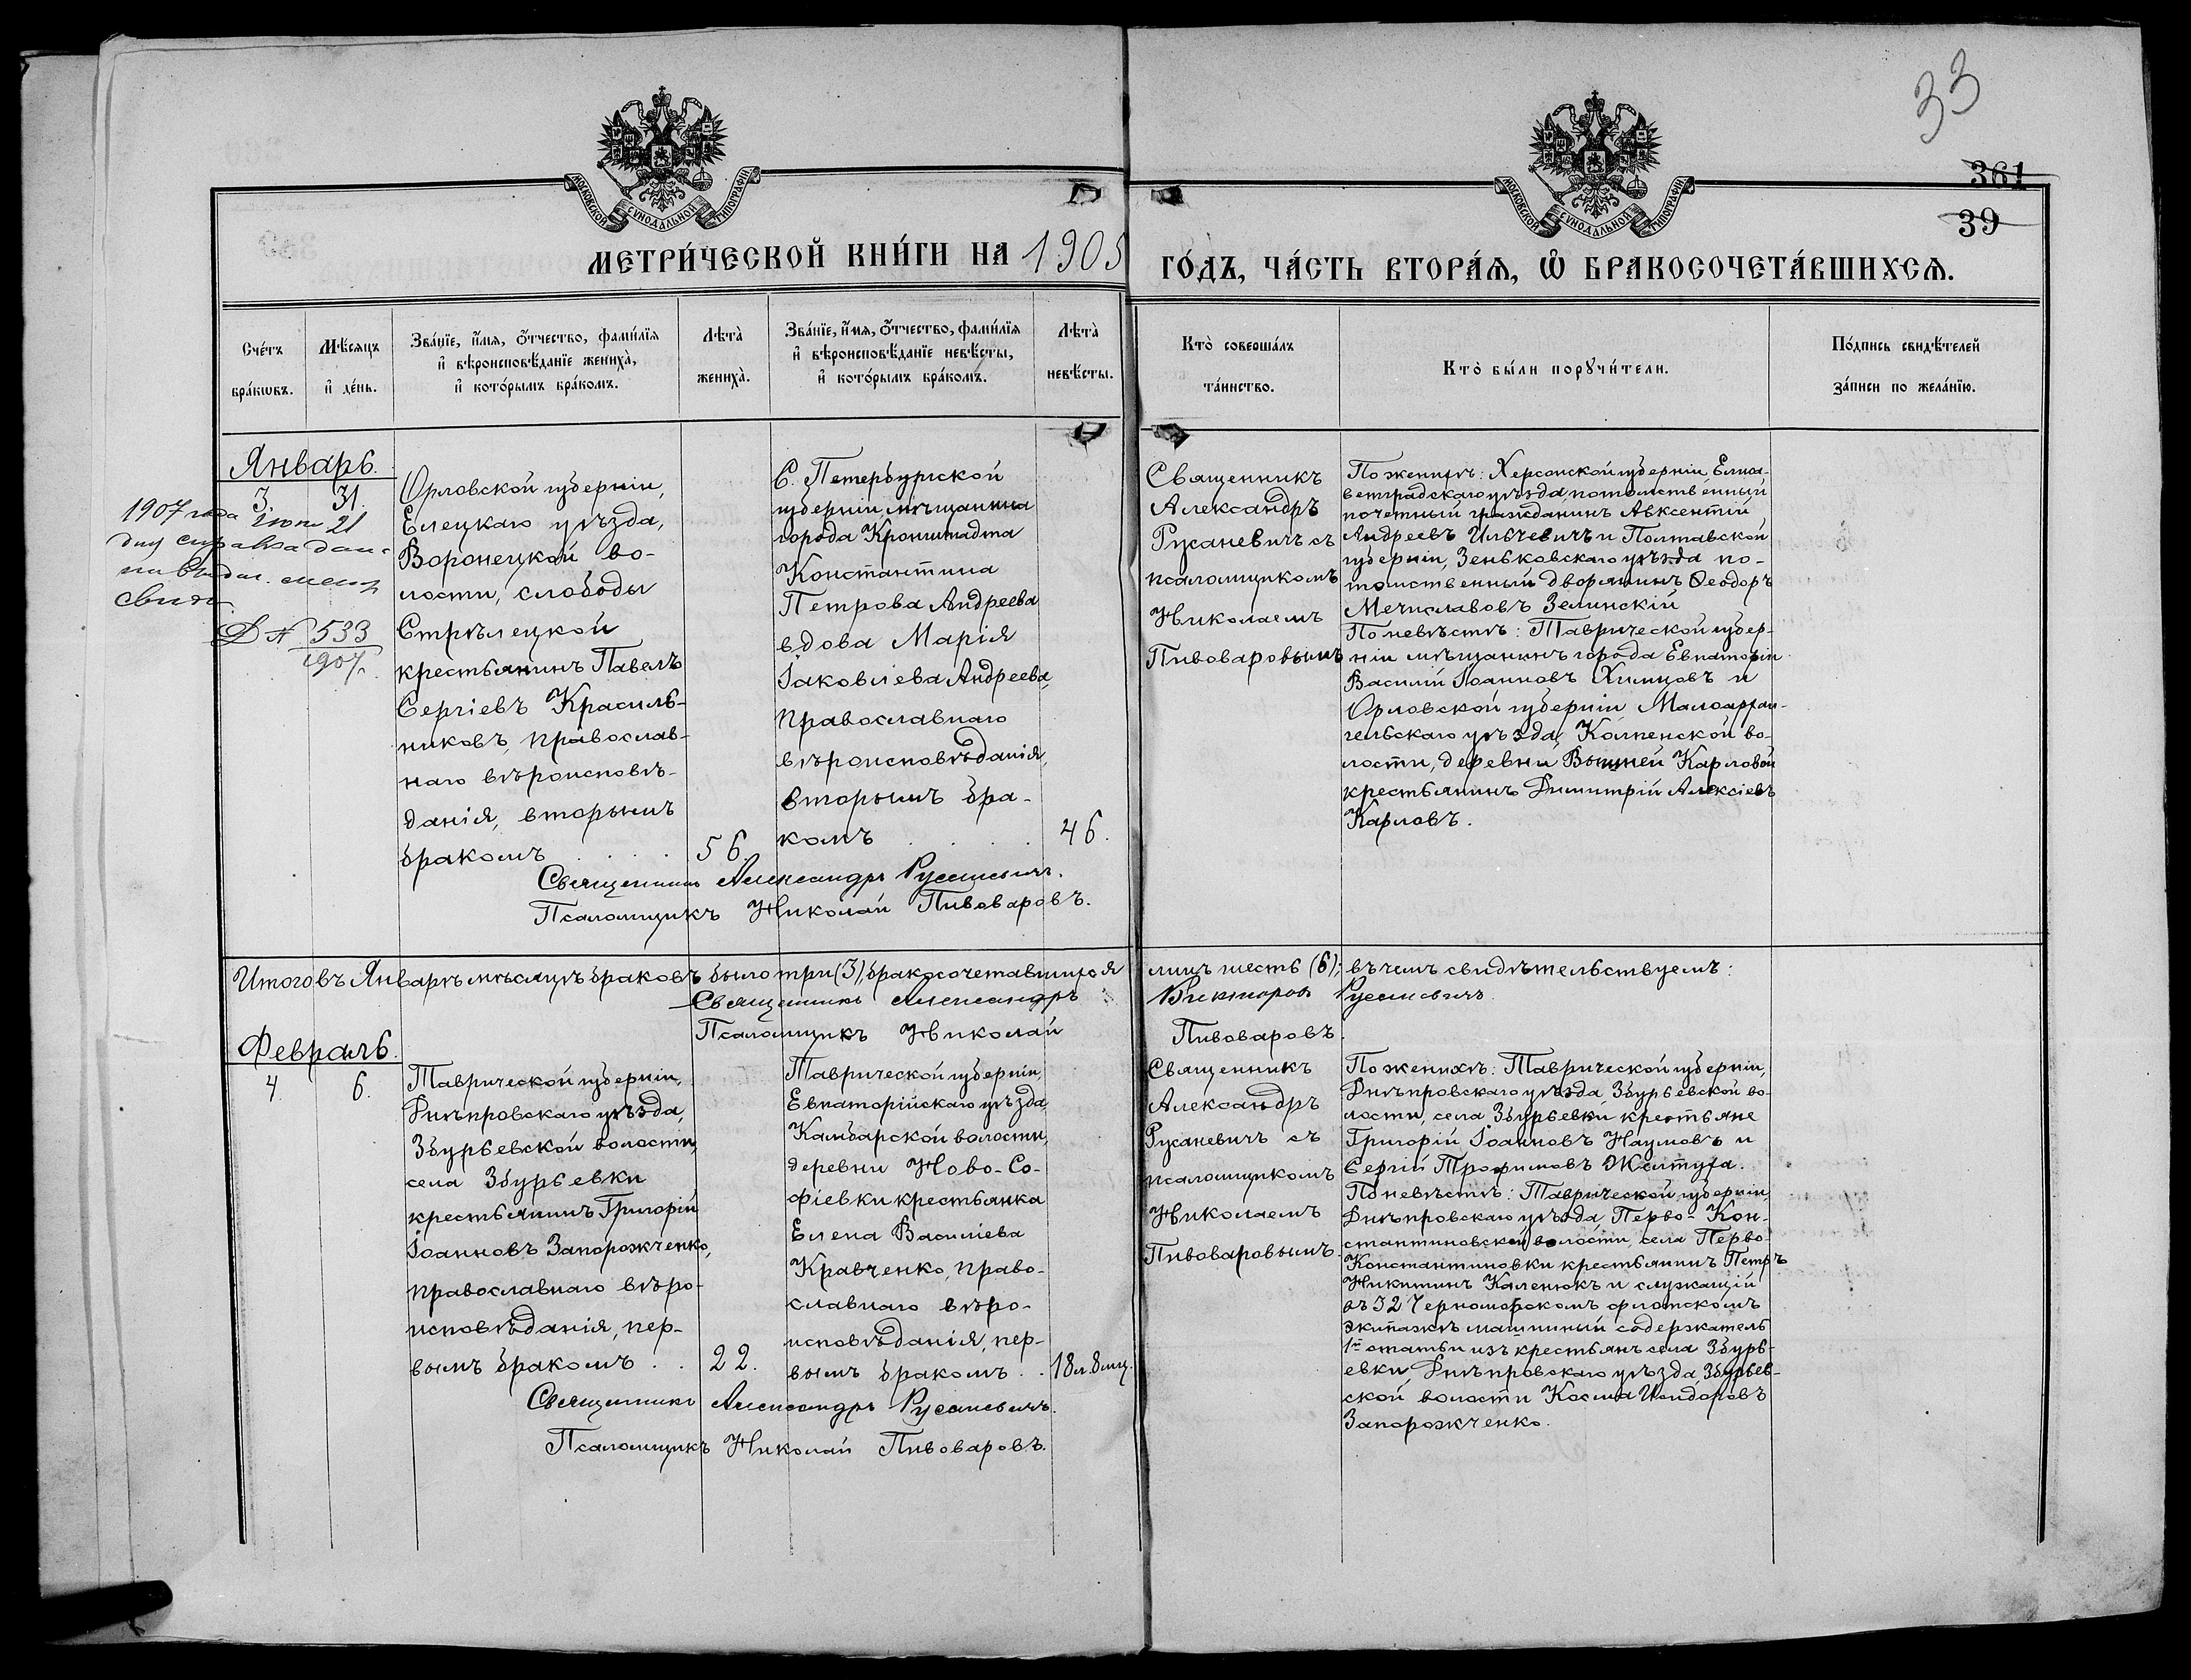 33
361
39
МОСКОВСКОЙ СѴНОДАЛЬНОЙ ТИПОГРАФІИ
МОСКОВСКОЙ СѴНОДАЛЬНОЙ ТИПОГРАФІИ
МЕТРИ́ЧЕСКОЙ КНИ́ГИ НА 1905 ГО́ДЪ, ЧА́СТЬ ВТОРА́Я, Ѽ БРАКОСОЧЕТА́ВШИХСЯ.
Сче́тъ
бра́кѡвъ.
Мѣ́сяцъ
и҆ де́нь.
Зва́нїе, и҆́мя, ѻ҆́тчество, фами́лїя
и҆ вѣроисповѣ́данїе жениха̀,
и҆ кото́рымъ бра́комъ.
Лѣта̀
жениха̀.
Зва́нїе, и҆́мя, ѻ҆́тчество, фами́лїя
и҆ вѣроисповѣ́данїе невѣ́сты,
и҆ кото́рымъ бра́комъ.
Лѣта̀
невѣ́сты.
Кто̀ соверша́лъ
та́инство.
Кто̀ бы́ли порꙋчи́тели.
По́дпись свидѣ́телей
за́писи по жела́нїю.
Январь.
3. 31.
1907 года
21
дня справка дан
Д № 533
1907
Орловской губерніи,
Елецкаго уѣзда,
Воронецкой во-
лости, слободы
Стрѣлецкой
крестьянинъ Павелъ
Сергіевъ Красиль-
никовъ, православ-
наго вѣроисповѣ-
данія, вторымъ
бракомъ . . . .
56.
С. Петербургской
губерніи мѣщанина
города Кронштадта
Константина
Петрова Андреева
вдова Марія
Іаковлева Андреева,
православнаго
вѣроисповѣданія,
вторымъ бра-
комъ . . . .
46.
Священникъ
Александръ
Русаневичъ съ
псаломщикомъ
Николаемъ
Пивоваровымъ
По женихѣ: Херсонской губерніи Елиса-
ветградскаго уѣзда, потомственный
почетный гражданинъ Авксентій
Андреевъ Ильчевичъ и Полтавской
губерніи, Зеньковскаго уѣзда по-
томственный дворянинъ Ѳеодоръ
Мечиславовъ Зелинскій
По невѣстѣ: Таврической губер-
ніи мѣщанинъ города Евпаторіи
Василій Іоанновъ Химцовъ и
Орловской губерніи Малоархан-
гельскаго уѣзда, Колпенской во-
лости, деревни Вышней Карловой
крестьянинъ Димитрій Алексіевъ
Карловъ.
Священникъ Александръ Русаневичъ.
Псаломщикъ Николай Пивоваровъ.
Итого въ Январѣ мѣсяцѣ браковъ было три (3), бракосочетавшихся лицъ шесть (6); въ чемъ свидѣтельствуемъ:
Священникъ Александръ Викторовъ Русаневичъ.
Псаломщикъ Николай Пивоваровъ.
Февраль.
4. 6.
Таврической губерніи,
Днѣпровскаго уѣзда,
Збурьевской волости,
села Збурьевки
крестьянинъ Григорій
Іоанновъ Запорожченко,
православнаго вѣро-
исповѣданія, пер-
вымъ бракомъ . .
22.
Таврической губерніи,
Евпаторійскаго уѣзда,
Камбарской волости,
деревни Ново-Со-
фіевки крестьянка
Елена Василіева
Кравченко, право-
славнаго вѣро-
исповѣданія, пер-
вымъ бракомъ . .
18 л. 8 мц.
Священникъ
Александръ
Русаневичъ съ
псаломщикомъ
Николаемъ
Пивоваровымъ.
По женихѣ: Таврической губерніи,
Днѣпровскаго уѣзда, Збурьевской во-
лости, села Збурьевки крестьяне
Григорій Іоанновъ Наумовъ и
Сергій Трофимовъ Желтуха.
По невѣстѣ: Таврической губерніи,
Днѣпровскаго уѣзда, Перво-Кон-
стантиновской волости, села Перво-
Константиновки крестьянинъ Петръ
Никитинъ Каленюкъ и служащій
въ 32 Черноморскомъ флотскомъ
экипажѣ машинный содержатель
1й статьи изъ крестьянъ села Збурь-
евки Днѣпровскаго уѣзда, Збурьев-
ской волости Косма Исидоровъ
Запорожченко.
Священникъ Александръ Русаневичъ.
Псаломщикъ Николай Пивоваровъ.